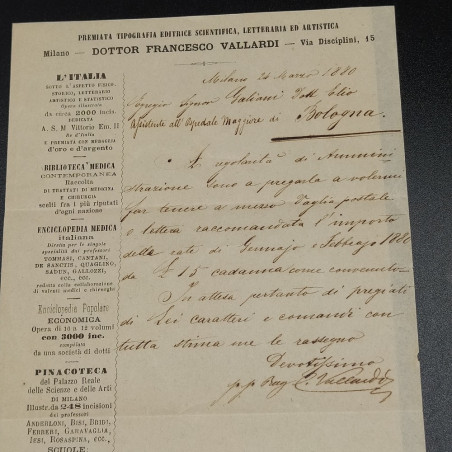 PREMIATA TIPOGRAFIA EDITRICE SCIENTIFICA, LETTERARIA ED ARTISTICA
Milano — DOTTOR FRANCESCO VALLARDI — Via Disciplini, 15
L'ITALIA
SOTTO L'ASPETTO FISICO,
STORICO, LETTERARIO
ARTISTICO E STATISTICO
Opera illustrata
da circa 2000 inc.
DEDICATA
A S. M. Vittorio Em. II
Re d'Italia
E PREMIATA CON MEDAGLIA
d'oro e d'argento
BIBLIOTECA MEDICA
CONTEMPORANEA
Raccolta
DI TRATTATI DI MEDICINA
E CHIRURGIA
scelti fra i più riputati
d'ogni nazione
ENCICLOPEDIA MEDICA
italiana
Diretta per le singole
specialità dai professori
TOMMASI, CANTANI,
DE SANCTIS, QUAGLINO,
SADUN, GALLOZZI,
ecc., ecc.
redatta colla collaborazione
di valenti medici e chirurghi
Enciclopedia Popolare
ECONOMICA
Opera di 10 a 12 volumi
con 3000 inc.
compilata
da una società di dotti
PINACOTECA
del Palazzo Reale
delle Scienze e delle Arti
DI MILANO
Illustr. da 248 incisioni
dei professori
ANDERLONI, BISI, BRIDI,
FERRERI, GARAVAGLIA,
IESI, ROSASPINA, ecc.,
SCUOLE:
Milano 24 Marzo 1880
Egregio Signor Galiani Dott Elio
Assistente all'Ospedale Maggiore di Bologna.
A regolarità di Ammini
strazione sono a pregarla a volermi
far tenere a mezzo Vaglia postale
o lettera raccomandata l'importo
delle rate di Gennajo e Febbrajo 1880
da £ 15 cadauna come convenuto.
In attesa pertanto di pregiati
di Lei caratteri e comandi con
tutta stima me le rassegno
Devotissimo
p. p. Rag. C. Vallardi